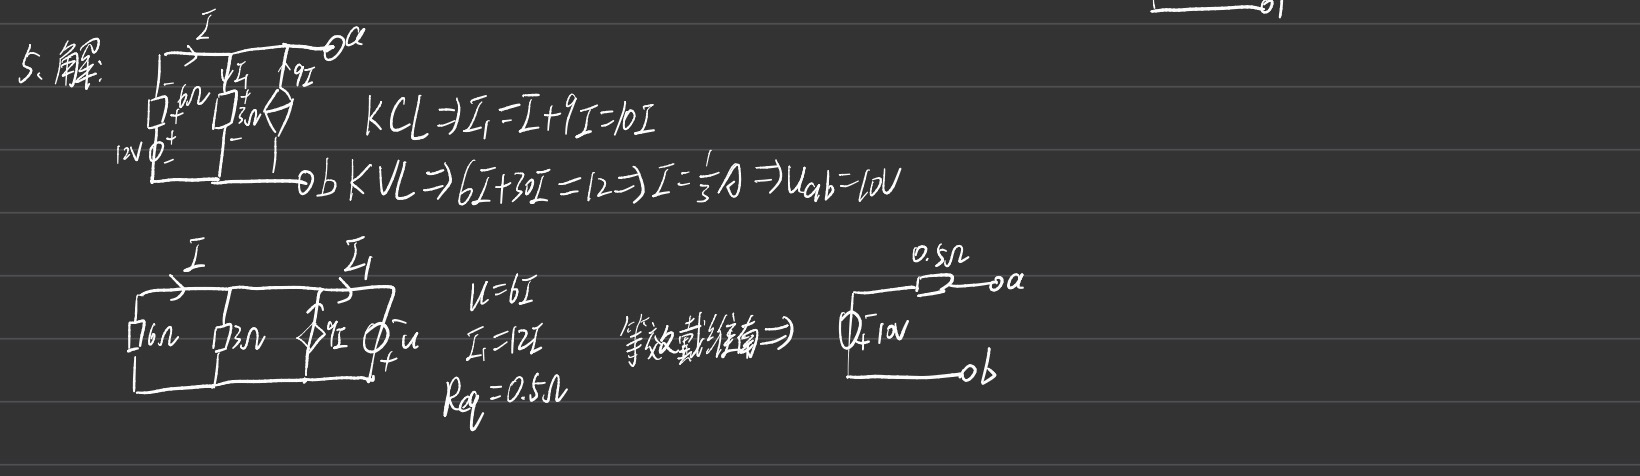 5、解:
I
a
I₁
9I
- 6Ω +
+ 3Ω -
12V + -
KCL⇒I₁=I+9I=10I
b
KVL⇒6I+30I=12⇒I=1/3A⇒Uab=10V
I
I₁
6Ω
3Ω
9I
- u +
u=6I
I₁=12I
Req=0.5Ω
等效戴维南⇒
0.5Ω
a
- 10V +
b